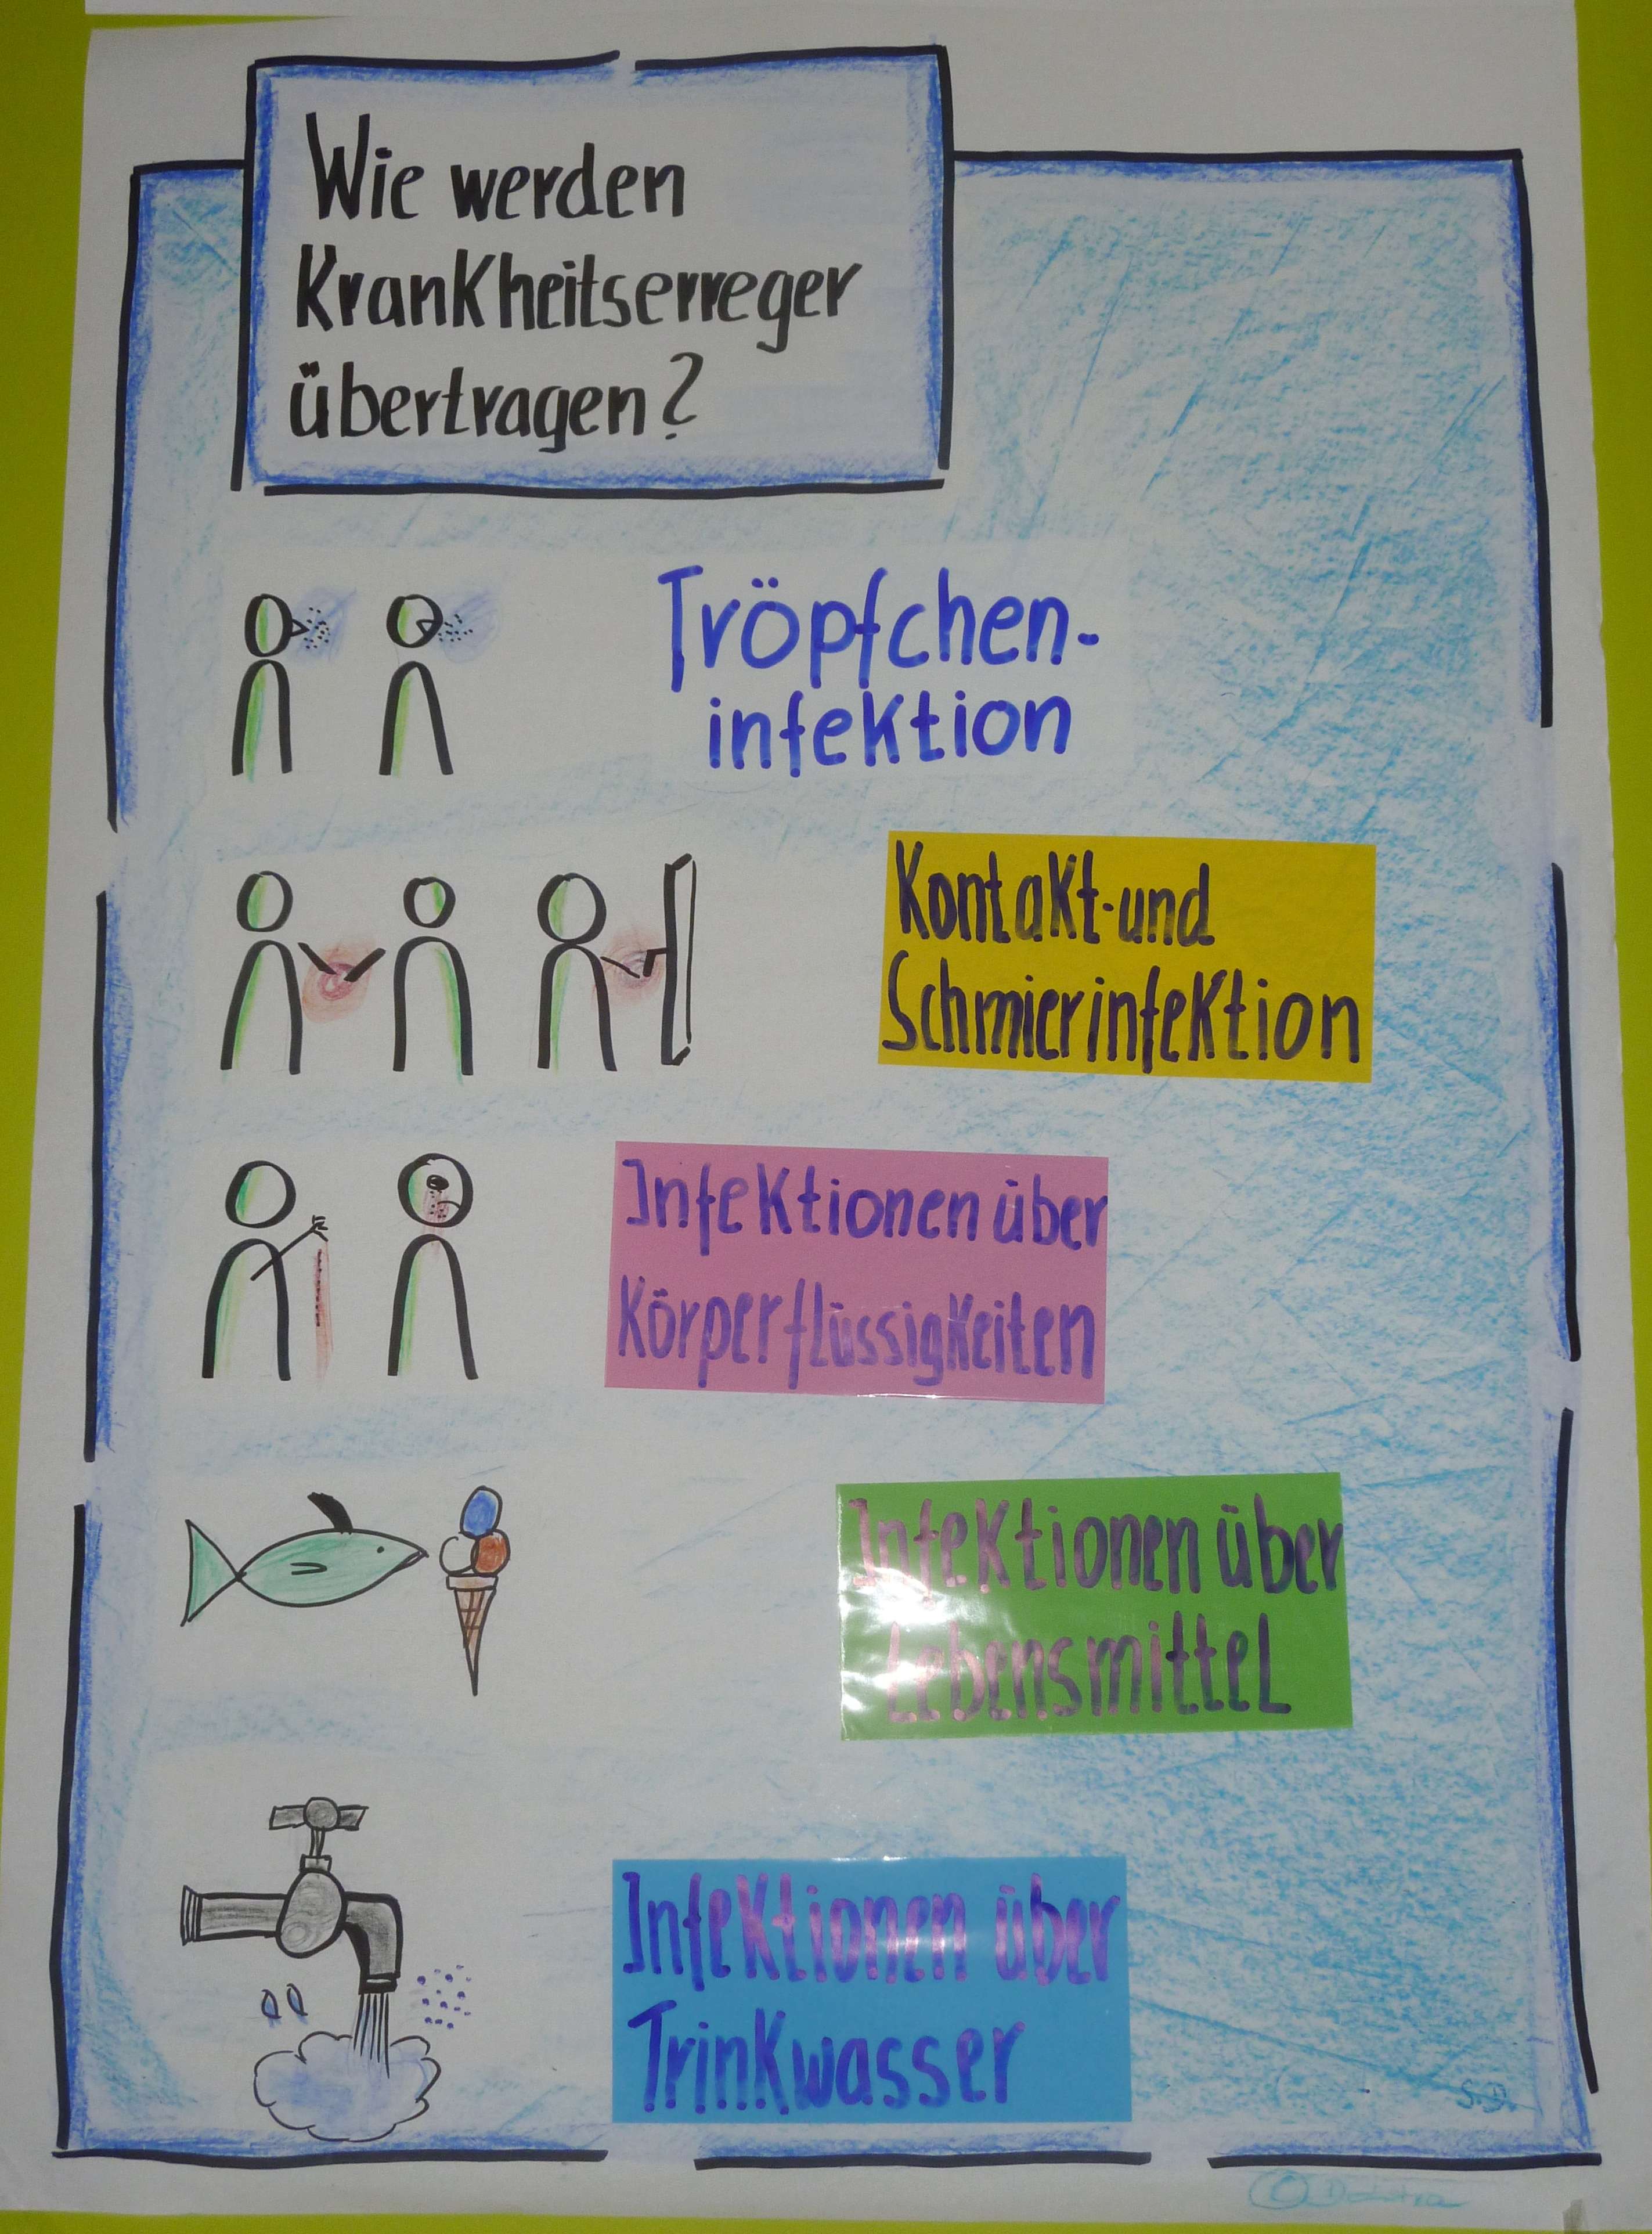 Wie werden
Krankheitserreger
übertragen?
Tröpfchen-
infektion
Kontakt-und
Schmierinfektion
Infektionen über
Körperflüssigkeiten
Infektionen über
Lebensmittel
Infektionen über
Trinkwasser
S.D.
©